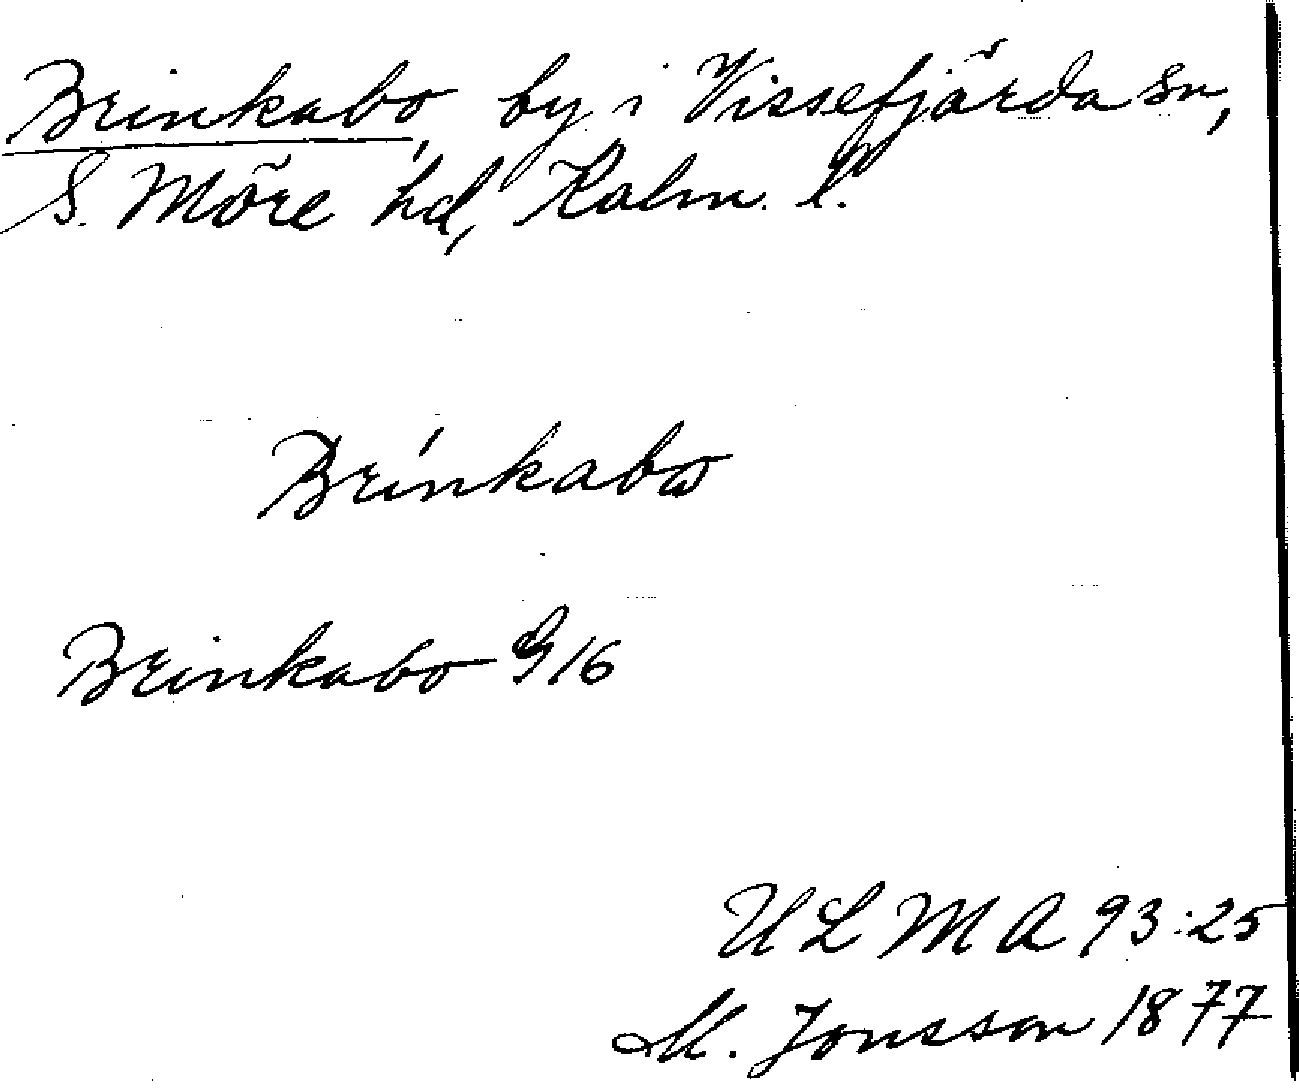 Brinkabo, by i Vissefjärda sn,
S. Möre hd, Kalm. l.
Brinkabo
Brinkabo 916
ULMA 93:25
M. Jonsson 1877